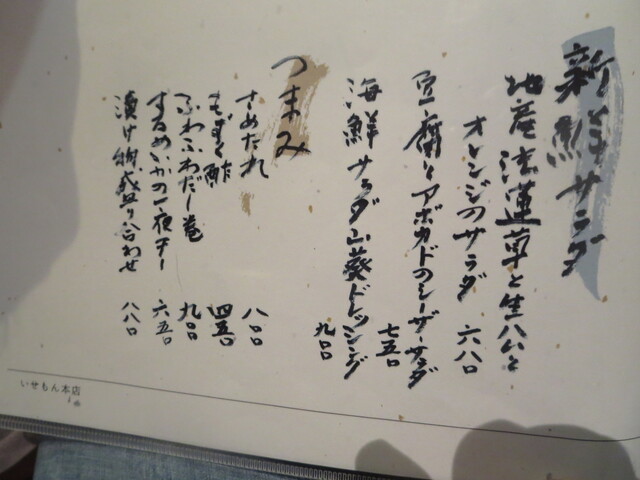 新鮮サラダ
地産法蓮草と生ハムと
オレンジのサラダ 六八〇
豆腐とアボカドのシーザーサラダ
七五〇
海鮮サラダ山葵ドレッシング
九〇〇
つまみ
さめたれ 八〇〇
もずく酢 四五〇
ふわふわだし巻 九〇〇
するめいかの一夜干し 六五〇
漬け物盛り合わせ 八八〇
いせもん本店